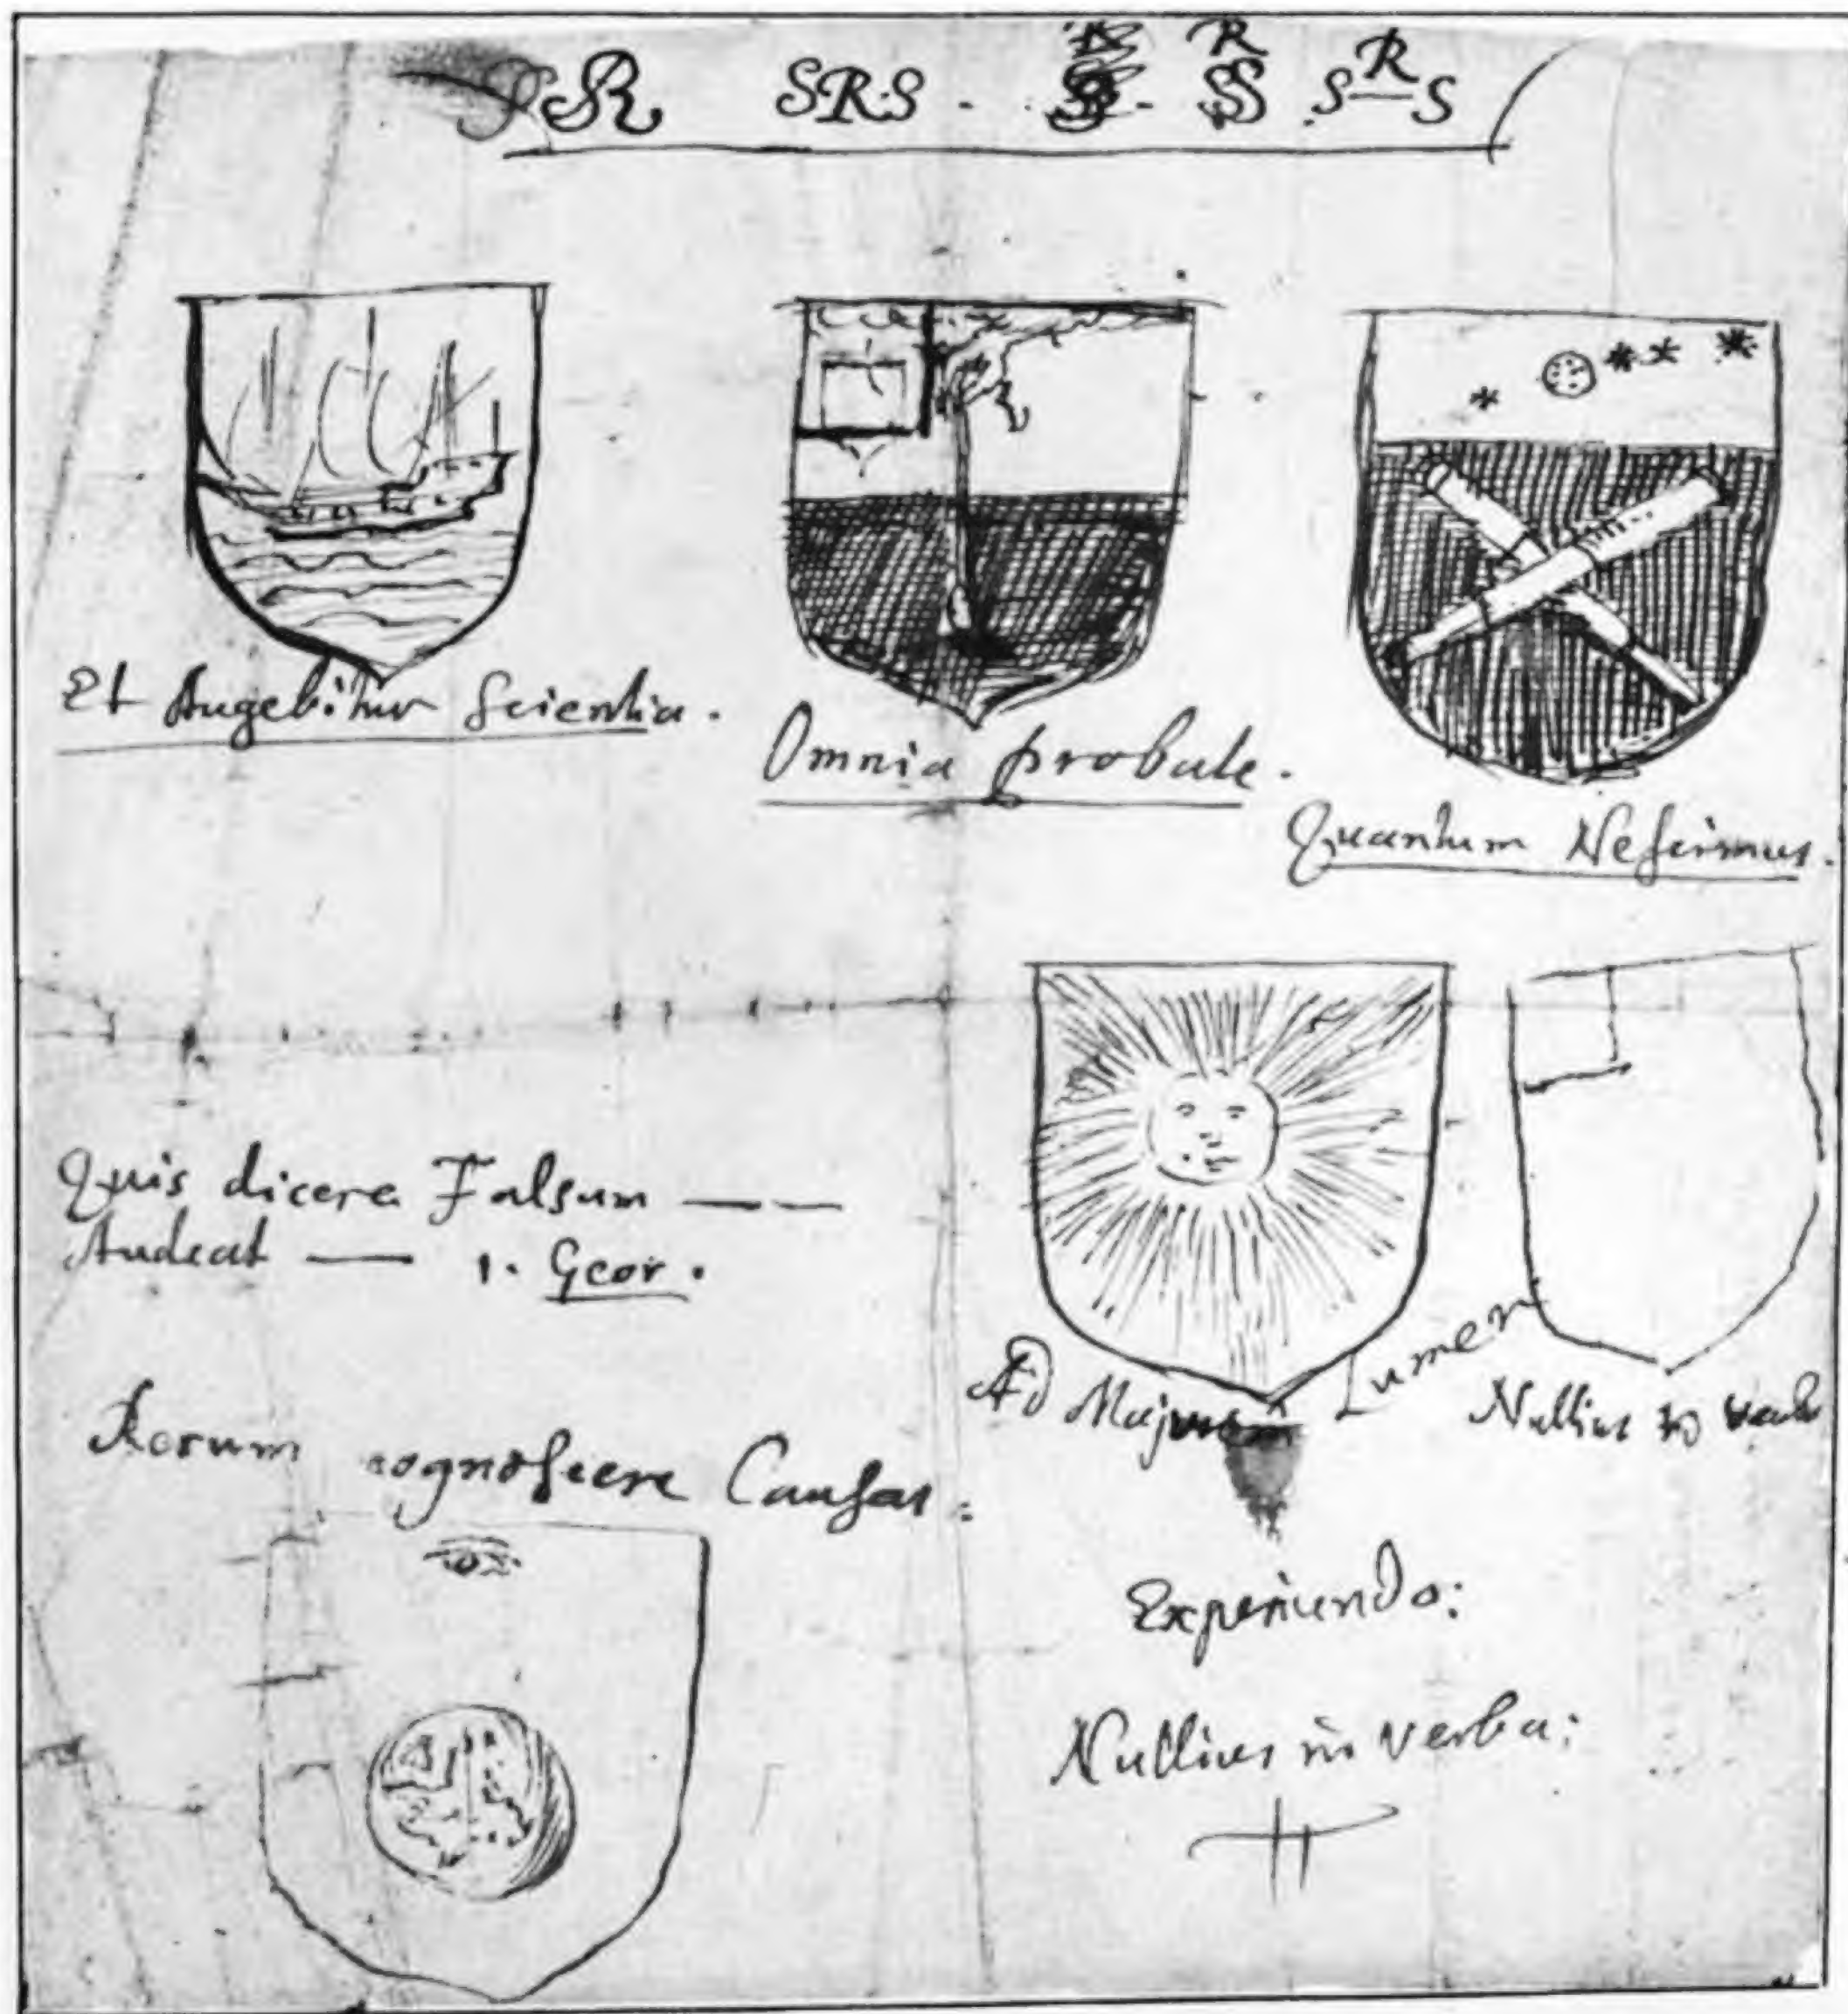 SR SRS . R SS . S R S
Et Augebitur Scientia.
Omnia probate.
Quantum Nescimus.
Quis dicere Falsum — —
Audeat — 1. Geor.
Ad Majus Lumen
Nullius in verba
Rerum cognoscere Causas:
Experiendo:
Nullius in verba: